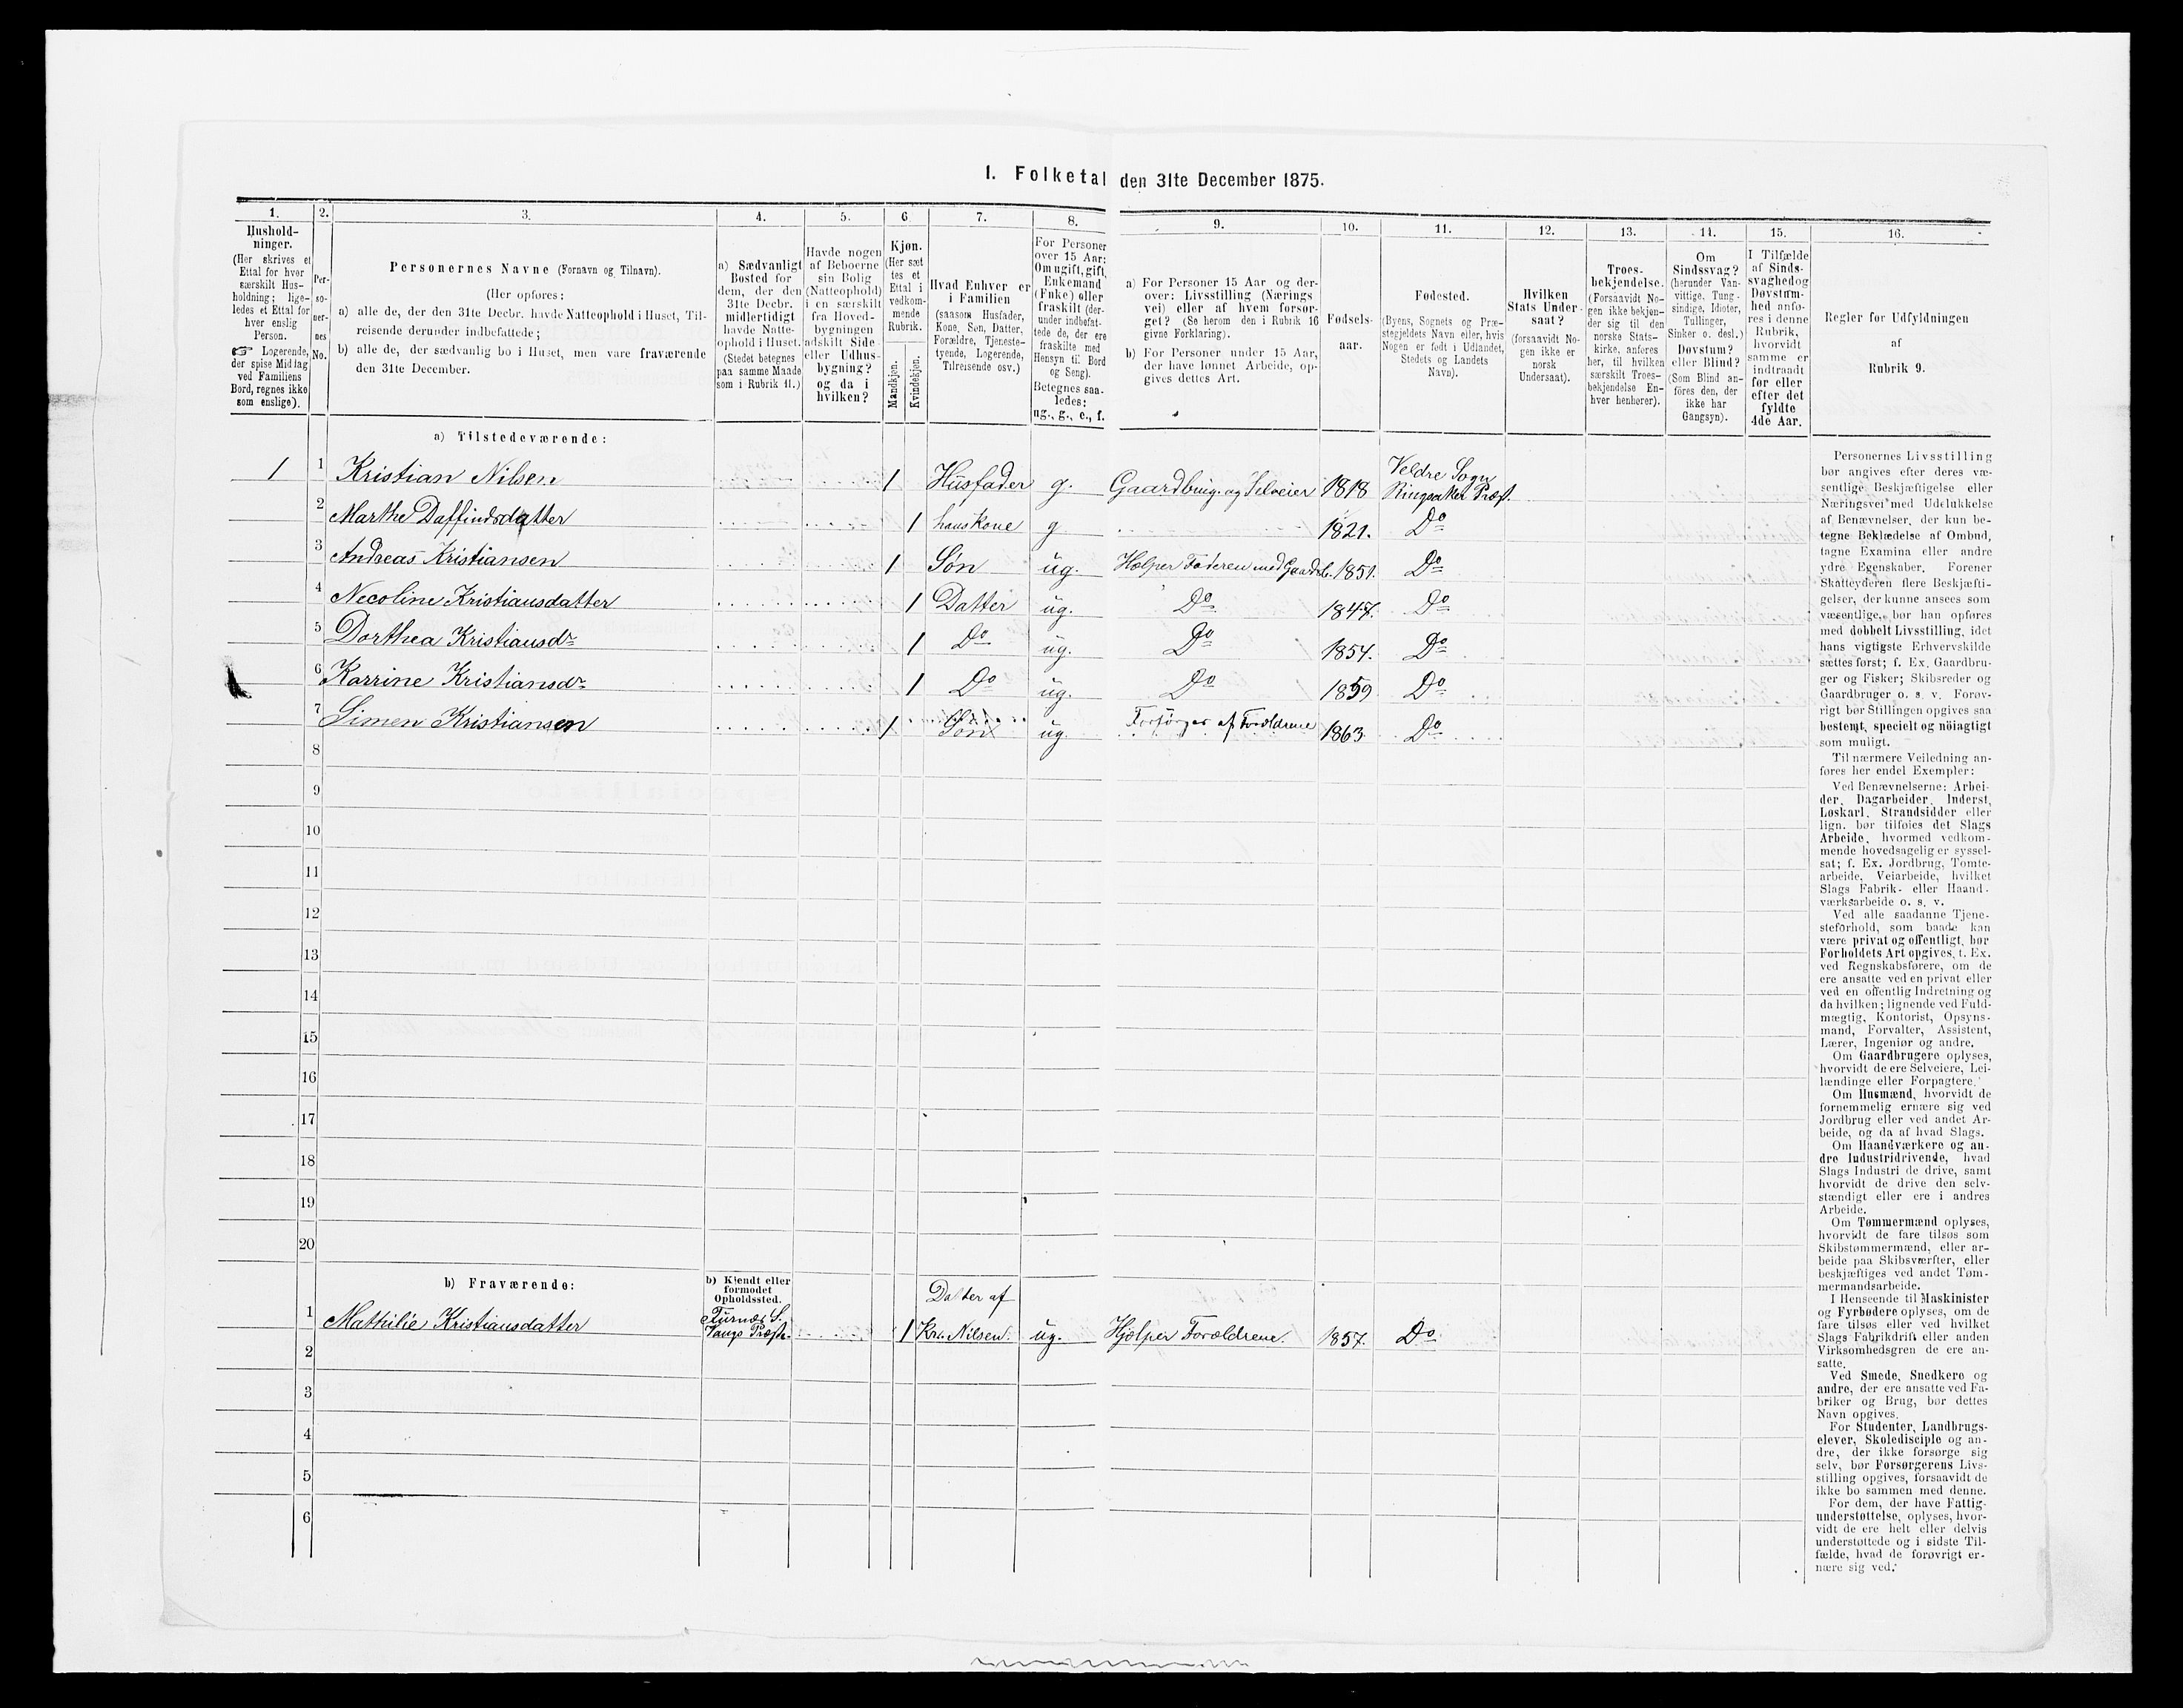 1. Folketal den 31te December 1875.
1. 2. 3. 4. 5. 6. 7. 8. 9. 10. 11. 12. 13. 14. 15. 16.
Hushold-
ninger.
(Her skrives et
Ettal for hver
særskilt Hus-
holdning; lige-
ledes et Ettal for
hver enslig
Person.
☞ Logerende,
der spise Middag
ved Familiens
Bord, regnes ikke
som enslige).
Per-
so-
ner-
nes
No.
Personernes Navne (Fornavn og Tilnavn).
(Her opføres:
a) alle de, der den 31te Decbr. havde Natteophold i Huset, Til-
reisende derunder indbefattede;
b) alle de, der sædvanlig bo i Huset, men vare fraværende
den 31te December.
a) Sædvanligt
Bosted for
dem, der den
31te Decbr.
midlertidigt
havde Natte-
ophold i Huset.
(Stedet betegnes
paa samme Maade
som i Rubrik 11.)
Havde nogen
af Beboerne
sin Bolig
(Natteophold)
i en særskilt
fra Hoved-
bygningen
adskilt Side-
eller Udhus-
bygning?
og da i
hvilken?
Kjøn.
(Her sæt
tes et
Ettal i
vedkom-
mende
Rubrik.
Mandkjøn.
Kvindekjøn.
Hvad Enhver er
i Familien
(saasom Husfader,
Kone, Søn, Datter,
Forældre, Tjeneste-
tyende, Logerende,
Tilreisende osv.)
For Personer
over 15 Aar:
Om ugift, gift,
Enkemand
(Enke) eller
fraskilt (der-
under indbefat-
tede de, der ere
fraskilte med
Hensyn til Bord
og Seng).
Betegnes saa-
ledes:
ug., g., e., f.
a) For Personer 15 Aar og der-
over: Livsstilling (Nærings
vei) eller af hvem forsør-
get? (Se herom den i Rubrik 16
givne Forklaring).
b) For Personer under 15 Aar,
der have lønnet Arbeide, op-
gives dettes Art.
Fødsels-
aar.
Fødested.
(Byens, Sognets og Præ-
stegjeldets Navn eller, hvis
Nogen er født i Udlandet,
Stedets og Landets
Navn).
Hvilken
Stats Under-
saat?
(forsaavidt No-
gen ikke er
norsk
Undersaat).
Troes-
bekjendelse.
(Forsaavidt No-
gen ikke bekjen-
der sig til den
norske Stats-
kirke, anføres
her, til hvilken
særskilt Troes-
bekjendelse En-
hver henhører).
Om
Sindssvag?
(herunder Van-
vittige, Tung-
sindige, Idioter,
Tullinger,
Sinker o. desl.)
Døvstum?
eller Blind?
(Som Blind an-
føres den, der
ikke har
Gangsyn).
I Tilfælde
af Sinds-
svaghed og
Døvstum-
hed anfø-
res i denne
Rubrik,
hvorvidt
samme er
indtraadt
før eller
efter det
fyldte
4de Aar.
Regler for Udfyldningen
af
Rubrik 9.
a) Tilstedeværende:
1 1 Kristian Nilsen 1 Husfader g. Gaardbrug. og Selveier 1818 Veldre Sogn
Ringsaker Præst.
2 Marthe Daffindsdatter 1 hans Kone g 1821. Do
3 Andreas Kristiansen 1 Søn ug. Hælper Faderen med Gaardsb. 1851. Do
4 Necoline Kristiansdatter 1 Datter ug. Do 1847. Do
5 Dorthea Kristiansdr 1 Do ug. Do 1854. Do
6 Karrine Kristiansdr 1 Do ug. Do 1859 Do
7 Simen Kristiansen 1 Søn ug. Forsørges af Forældrene 1863 Do
8
9
10
11
12
13
14
15
16
17
18
19
20
b) Fraværende:
b) Kjendt eller
formodet
Opholdssted.
1 Mathilie Kristiansdatter Furnæs S.
Vangs Præst. 1 Datter af
Kr. Nilsen. ug. Hjælper Forældrene. 1857. Do
2
3
4
5
6
Personernes Livsstilling
bør angives efter deres væ-
sentlige Beskjæftigelse eller
Næringsvei med Udelukkelse
af Benævnelser, der kun be-
tegne Beklædelse af Ombud,
tagne Examina eller andre
ydre Egenskaber. Forener
Skatteyderen flere Beskjæfti-
gelser, der kunne ansees som
væsentlige, bør han opføres
med dobbelt Livsstilling, idet
hans vigtigste Erhvervskilde
sættes først; f. Ex. Gaardbru-
ger og Fisker; Skibsreder og
Gaardbruger o. s. v. Forøv-
rigt bør Stillingen opgives saa
bestemt, specielt og nöiagtigt
som muligt.
Til nærmere Veiledning an-
føres her endel Exempler:
Ved Benævnelserne: Arbei-
der, Dagarbeider, Inderst,
Løskarl, Strandsidder eller
lign. bør tilføies det Slags
Arbeide, hvormed vedkom-
mende hovedsagelig er syssel-
sat; f. Ex. Jordbrug, Tomte-
arbeide, Veiarbeide, hvilket
Slags Fabrik- eller Haand-
værksarbeide o. s. v.
Ved alle saadanne Tjene-
steforhold, som baade kan
være privat og offentligt, bør
Forholdets Art opgives, t. Ex.
ved Regnskabsførere, om de
ere ansatte ved en privat eller
ved en offentlig Indretning og
da hvilken; lignende ved Fuld-
mægtig, Kontorist, Opsyns-
mand, Forvalter, Assistent,
Lærer, Ingeniør og andre.
Om Gaardbrugere oplyses,
hvorvidt de ere Selveiere, Lei-
lændinge eller Forpagtere.
Om Husmænd, hvorvidt de
fornemmelig ernære sig ved
Jordbrug eller ved andet Ar-
beide, og da af hvad Slags.
Om Haandværkere og an-
dre Industridrivende, hvad
Slags Industri de drive, samt
hvorvidt de drive den selv-
stændigt eller ere i andres
Arbeide.
Om Tømmermænd oplyses,
hvorvidt de fare tilsøs som
Skibstømmermænd, eller ar-
beide paa Skibsværfter, eller
beskjæftiges ved andet Tøm-
mermandsarbeide.
I Henseende til Maskinister
og Fyrbødere oplyses, om de
fare tilsøs eller ved hvilket
Slags Fabrikdrift eller anden
Virksomhedsgren de ere an-
satte.
Ved Smede, Snedkere og
andre, der ere ansatte ved Fa-
briker og Brug, bør dettes
Navn opgives.
For Studenter, Landbrugs-
elever, Skoledisciple og an-
dre, der ikke forsørge sig
selv, bør Forsørgerens Livs-
stilling opgives, forsaavidt de
ikke bo sammen med denne.
For dem, der have Fattig-
understøttelse, oplyses, hvor-
vidt de ere helt eller delvis
understøttede og i sidste Til-
fælde, hvad de forøvrigt er-
nære sig ved.